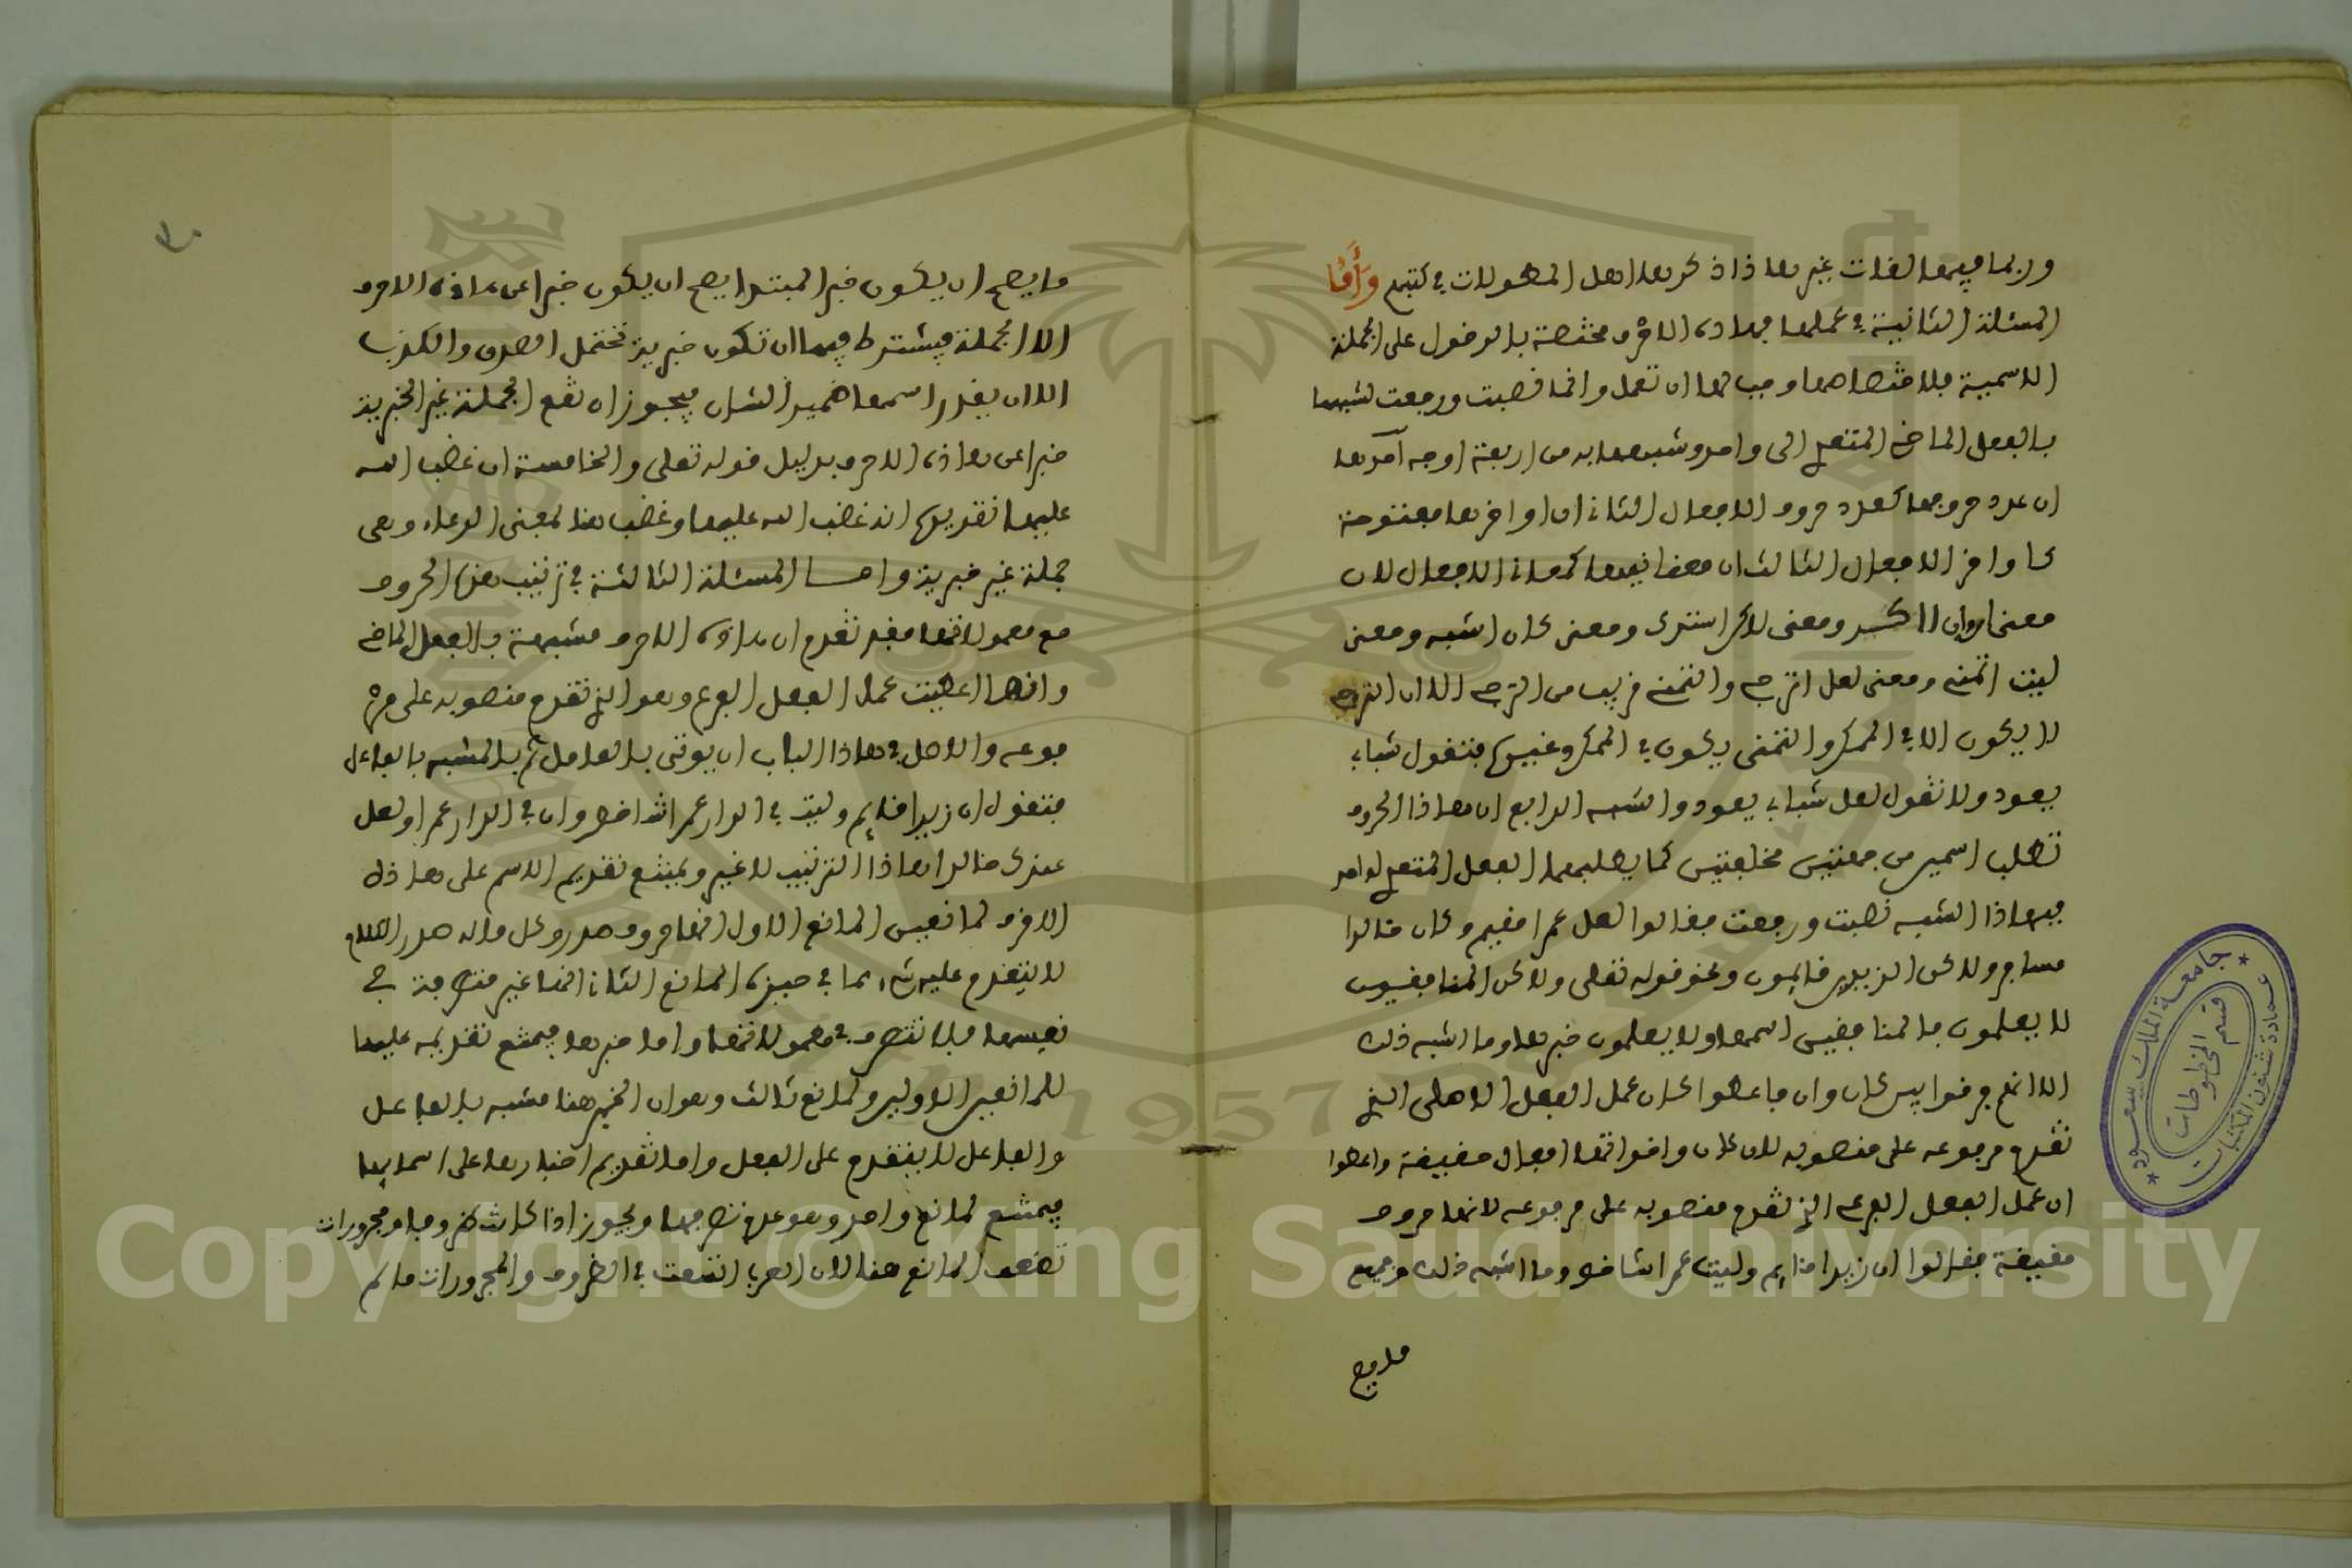 وربما فيها لغات غير هاذا ذكرها اهل المطولات في كتبهم وأما
المسئلة الثانية في عملها فهاذه الاحرف مختصة بالدخول على الجملة
الاسمية فلاختصاصها وجب لها ان تعمل وانما نصبت ورفعت لشبهها
بالفعل الماضي المتعدي الى واحد وشبهها به من اربعة اوجه احدها
ان عدد حروفها كعدد حروف الافعال الثاني ان اواخرها مفتوحة
كاواخر الافعال الثالث ان معانيها كمعاني الافعال لان
معنى ان وان اكد ومعنى لاكن استدرك ومعنى كان اشبه ومعنى
ليت اتمنى ومعنى لعل اترجى والتمني قريب من الترجي الا ان الترجي
لا يكون الا في الممكن والتمني يكون في الممكن وغيره فتقول شباب
يعود ولا تقول لعل شباب يعود والشبه الرابع ان هاذا الحروف
تطلب اسمين من جهتين مختلفتين كما يطلبهما الفعل المتعدي لواحد
فبهاذا الشبه نصبت ورفعت فقالوا لعل عمرا مقيم وكان خالدا
مسافر ولاكن الزيدين قايمون ونحو قوله تعلى ولاكن المنافقين
لا يعلمون فالمنافقين اسمها ولا يعلمون خبرها وما اشبه ذلك
الا انهم فرقوا بين كان وان فاعطوا كان عمل الفعل الاصلي الذي
تقدم مرفوعه على منصوبه لان كان واخواتها افعال حقيقة واعطوا
ان عمل الفعل الفرعي الذي تقدم منصوبه على مرفوعه لانها حروف
حقيقة فقالوا ان زيدا قايم وليت عمرا شاخص وما اشبه ذلك وجميع
ما يصح
ما يصح ان يكون خبر المبتدا يصح ان يكون خبرا عن هاذه الاحرف
الا الجملة فيشترط فيها ان تكون خبرية تحتمل الصدق والكذب
الا ان يقدر اسمها ضمير الشان فيجوز ان تقع الجملة غير الخبرية
خبرا عن هاذه الاحرف بدليل قوله تعلى والخامسة ان غضب الله
عليها تقديره انه غضب الله عليها وغضب هنا لمعنى الدعاء وهي
جملة غير خبرية واما المسئلة الثالثة في ترتيب هذه الحروف
مع معمولاتها فقد تقدم ان هاذه الاحرف مشبهة بالفعل الماضي
وانها اعطيت عمل الفعل الفرعي وهو الذي تقدم منصوبه على مر
فوعه والاصل في هاذا الباب ان يوتى بالعامل ثم بالمشبه بالفاعل
فتقول ان زيدا قايم وليت في الدار عمرا شاخص وان في الدار عمرا ولعل
عندك خالدا هاذا الترتيب لا غير ويمتنع تقديم الاسم على هاذه
الاحرف لمانعين المانع الاول انها حروف صدر وكل ما له صدر الكلام
لا يتقدم عليه شيء مما في حيزه المانع الثاني انها غير متصرفة في
نفسها فلا تتصرف في معمولاتها واما خبرها فيمتنع تقديمه عليها
للمانعين الاولين ولمانع ثالث وهو ان الخبر هنا مشبه بالفاعل
والفاعل لا يتقدم على الفعل واما تقديم اخبارها على اسمايها
فيمتنع لمانع واحد وهو عدم تصرفها ويجوز اذا كانت ظروفا او مجرورات
لضعف المانع هنا لان العرب اتسعت في الظروف والمجرورات ما لم
جامعة الملك سعود
عمادة شئون المكتبات
قسم المخطوطات
1957
Copyright © King Saud University